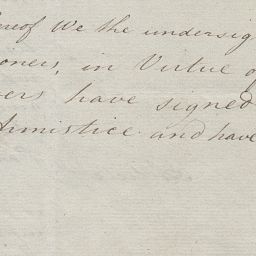 reof We the undersig
oners, in Virtue of
ers have signed
Armistice and have